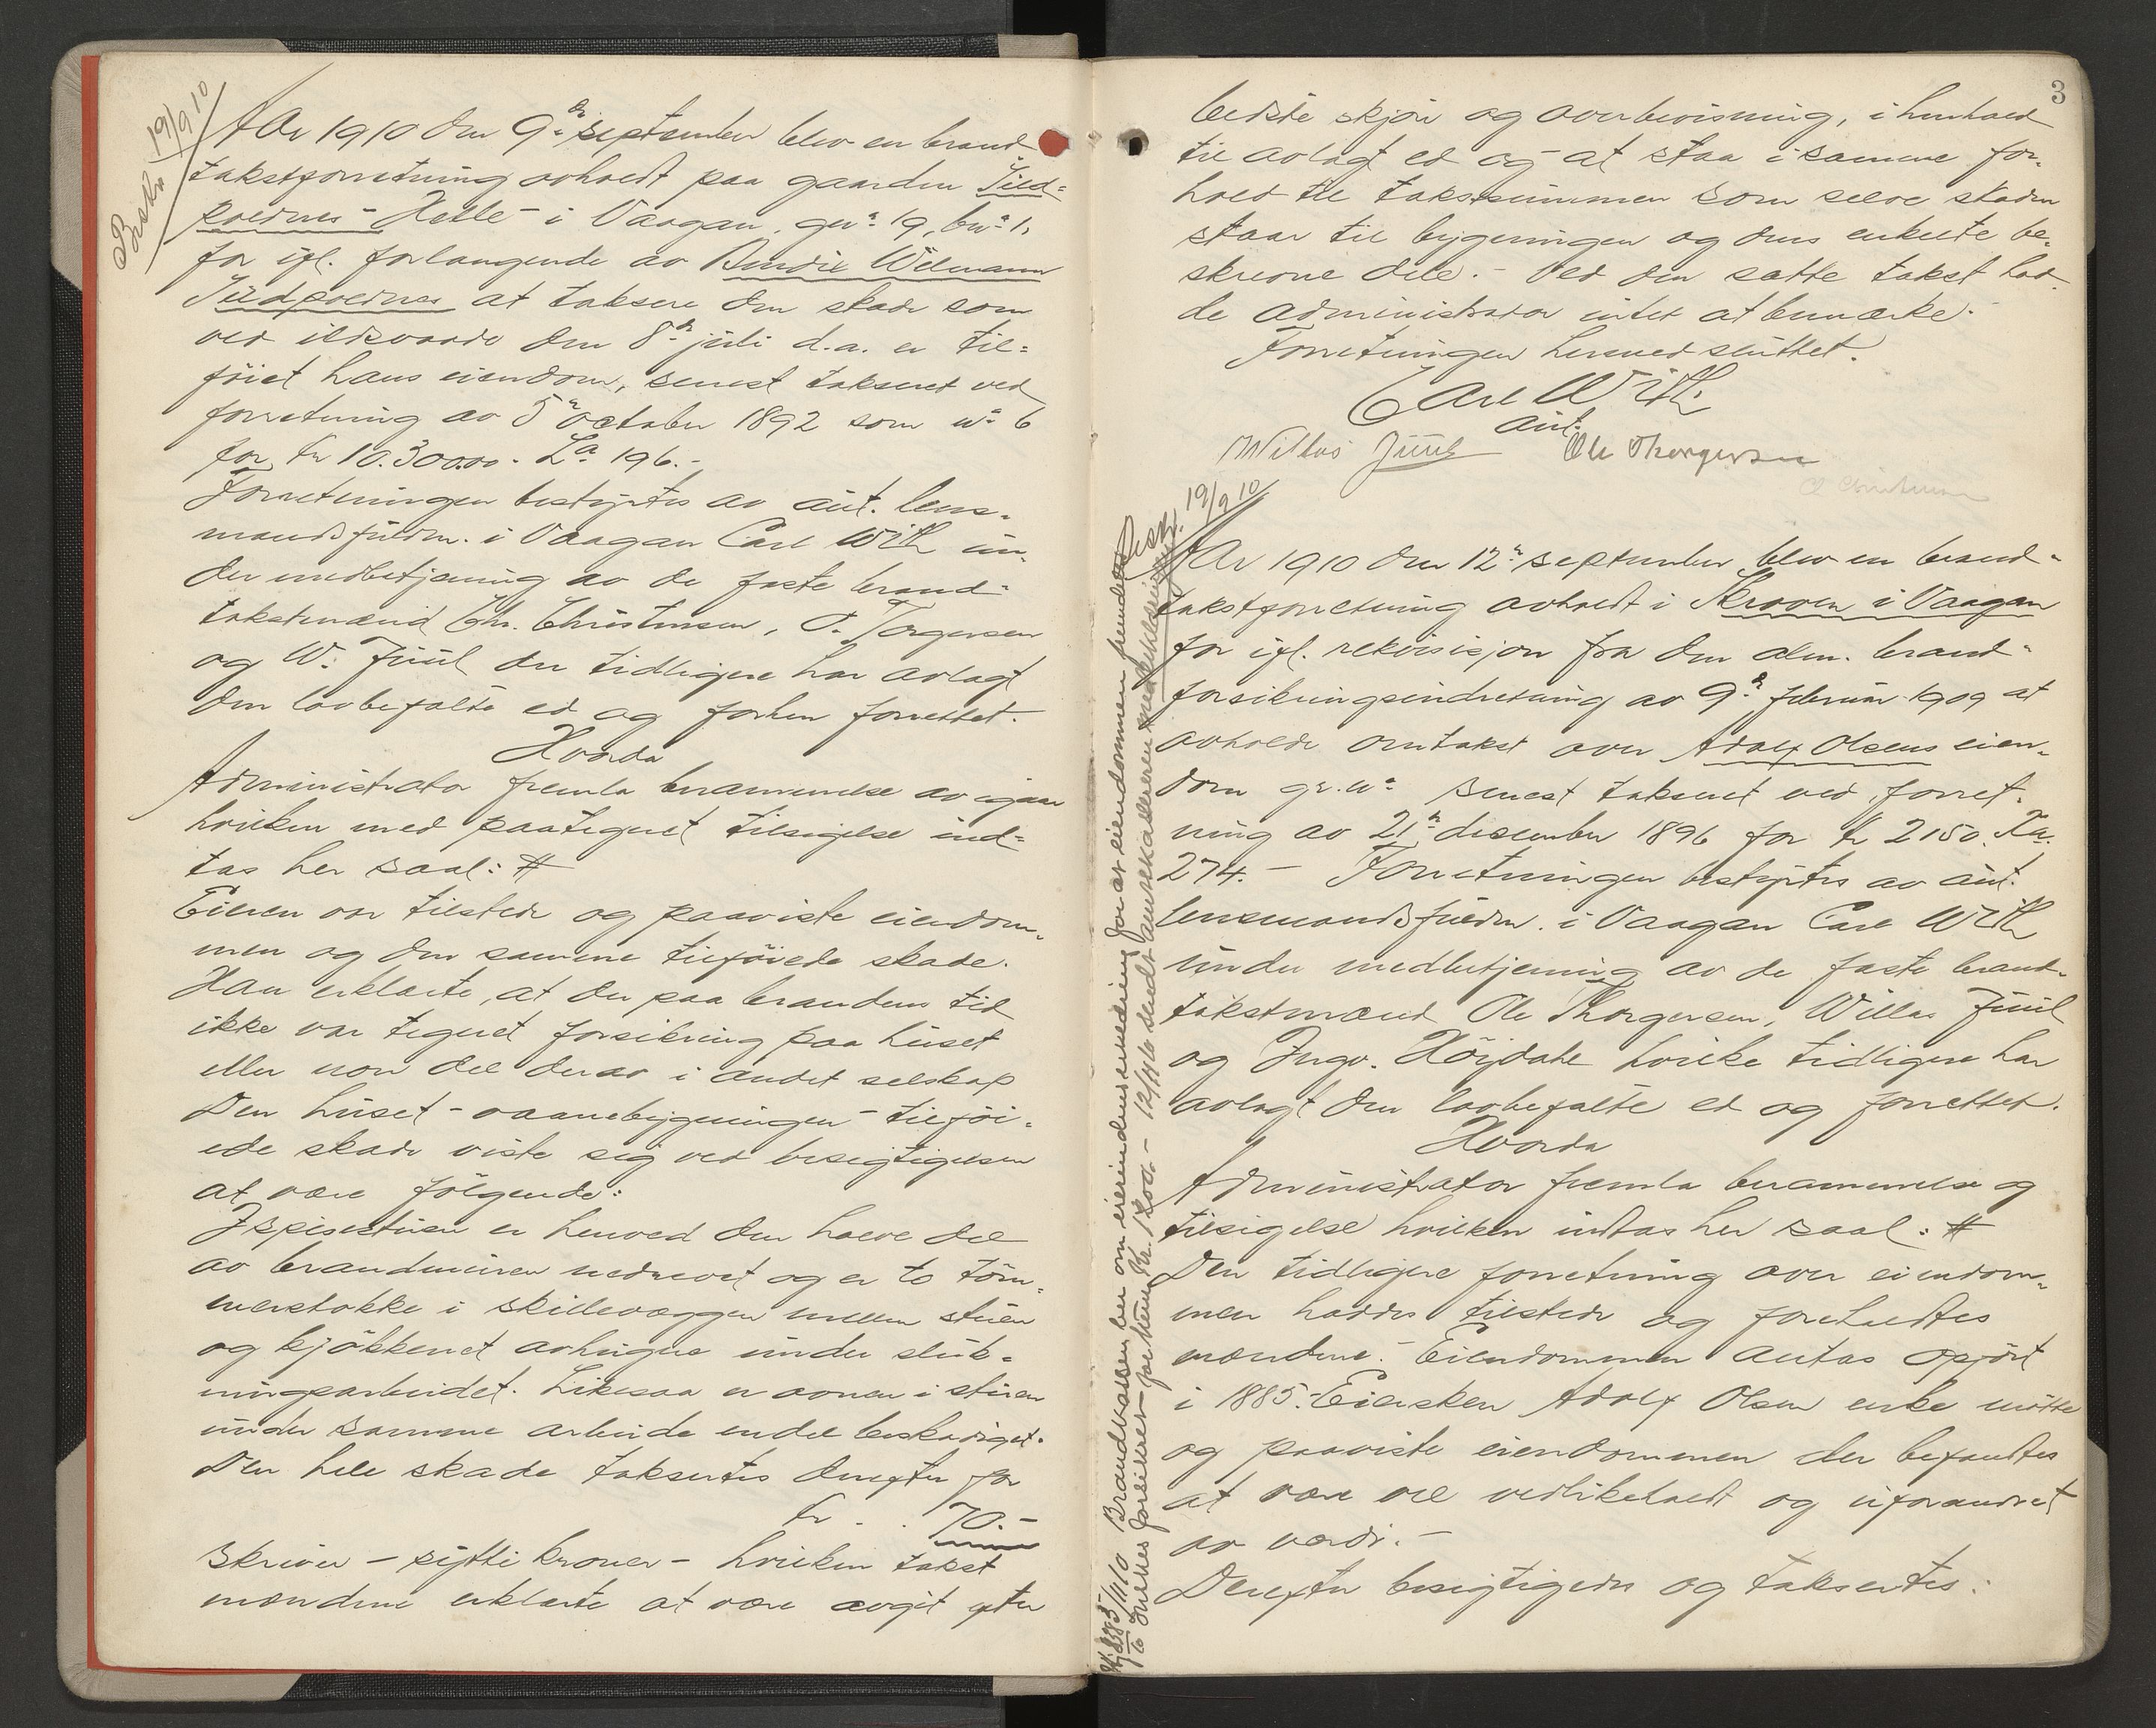 Beskr. 19/9 10
Aar 1910 den 9de september blev en brand-
takstforretning avholdt paa gaarden Tild-
poldnes - Helle - i Vaagan, gn: 19, bn: 1,
for ifl. forlangende av Bendix Wilmann
Tildpoldnes at taksere den skade som
ved ildsvaade den 8de juli d.a. er til-
föiet hans eiendom, senest taksert ved
forretning av 5te october 1892 som no 6
for kr 10.300.00. La 196.-
Forretningen bestyrtes av aut. lens-
mandsfuldm. i Vaagan Carl With un-
der medbetjening av de faste brand-
takstmænd Chr. Christensen, O. Torgersen
og W. Juul der tidligere har avlagt
den lovbefalte ed og forhen forrettet.
Hvorda
Administrator fremla berammelse av igaar
hvilken med paategnet tilsigelse ind-
tas her saal: #
Eieren var tilstede og paaviste eiendom-
men og den samme tilföiede skade.
Han erklærte, at der paa brandens tid
ikke var tegnet forsikring paa huset
eller noen del derav i andet selskap
Den huset - vaanebygningen - tilföi-
ede skade viste sig ved besigtigelsen
at være fölgende:
I spisestuen er henved den halve del
av brandmuren nedrevet og er to töm-
merstokke i skillevæggen mellem stuen
og kjökkenet avhugne under sluk-
ningsarbeidet. Likesaa er ovnen i stuen
under samme arbeide endel beskadiget.
Den hele skade taksertes derefter for
kr . . 70.-
skriver - sytti kroner - hvilken takst
mændene erklærte at være avgit efter
3
bedste skjön og overbevisning, i henhold
til avlagt ed og at staa i samme for-
hold til takstsummen som selve skaden
staar til bygningen og dens enkelte be-
skrevne dele. - Ved den satte takst had-
de administrator intet at bemærke.
Forretningen hermed sluttet.
Carl With
aut.
Willas Juul Ole Thorgersen
C Christensen
Beskr. 19/9 10
Aar 1910 den 12te september blev en brand-
takstforretning avholdt i Skroven i Vaagan
for ifl. rekvisisjon fra den alm. brand-
forsikringsindretning av 9de februar 1909 at
avholde omtakst over Adolf Olsens eien-
dom gr. no senest taksert ved forret-
ning av 21de desember 1896 for kr 2150. La.
274. - Forretningen bestyrtes av aut.
lensmandsfuldm. i Vaagan Carl With
under medbetjening av de faste brand-
takstmænd Ole Thorgersen, Willas Juul
og Ingv. Höjdahl hvilke tidligere har
avlagt den lovbefalte ed og forrettet.
Hvorda
Administrator fremla berammelse og
tilsigelse hvilken indtas her saal: #
Den tidligere forretning over eiendom-
men haddes tilstede og foreholdtes
mændene. Eiendommen antas opfört
i 1885. Eiersken Adolf Olsens enke mötte
og paaviste eiendommen der befandtes
at være vel vedlikeholdt og uforandret
av værdi. -
Derefter besigtigedes og taksertes:
5/11/10 Brandkassen ber om eierindens for at eiendommen
to 12/11/10 sendt